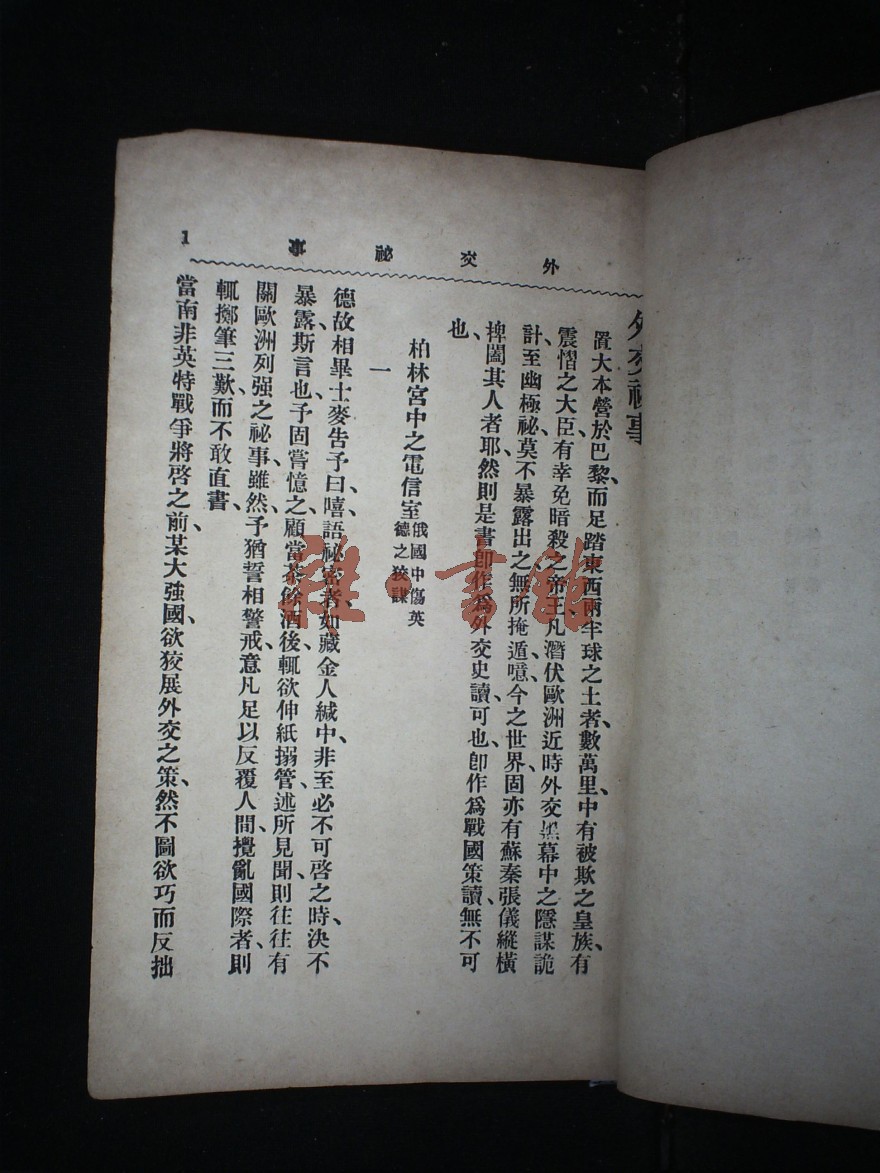 外交祕事
1
外交祕事
置大本營於巴黎、而足踏東西兩半球之土者、數萬里、中有被欺之皇族、有
震慴之大臣、有幸免暗殺之帝王、凡潛伏歐洲近時外交黑幕中之隱謀詭
計、至幽極祕、莫不暴露出之、無所掩遁、噫、今之世界、固亦有蘇秦張儀縱橫
捭闔其人者耶、然則是書卽作爲外交史讀可也、卽作爲戰國策讀、無不可
也、
柏林宮中之電信室
俄國中傷英
德之狡謀
一
德故相畢士麥告予曰、嘻、語祕密者、如藏金人緘中、非至必不可啓之時、決不
暴露、斯言也、予固嘗憶之、顧當茶餘酒後、輒欲伸紙搦管、述所見聞、則往往有
關歐洲列强之祕事、雖然、予猶誓相警戒、意凡足以反覆人間、攪亂國際者、則
輒擲筆三歎、而不敢直書、
當南非英特戰爭將啓之前、某大強國欲狡展外交之策、然不圖欲巧而反拙
雜·書館